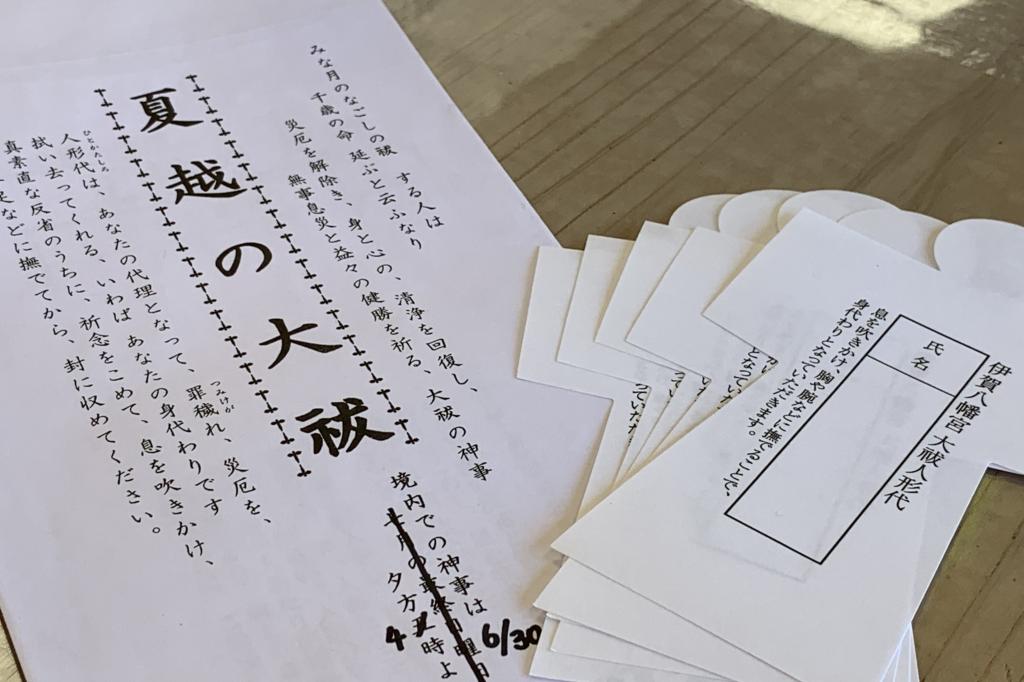 みな月のなごしの祓 する人は
千歳の命 延ぶと云ふなり
災厄を解除き、身と心の、清浄を回復し、
無事息災と益々の健勝を祈る、大祓の神事
夏越の大祓
人形代は、あなたの代理となって、罪穢れ、災厄を、
ひとかたしろ
つみけが
拭い去ってくれる、いわば あなたの身代わりです
真素直な反省のうちに、祈念をこめて、息を吹きかけ、
などに撫でてから、封に収めてください。
境内での神事は
七月の最終日曜日
夕方五時よ
6/30
4
伊賀八幡宮 大祓人形代
氏名
息を吹きかけ、胸や腕などに撫でることで、
身代わりとなっていただきます。
となっていた
となっていただ